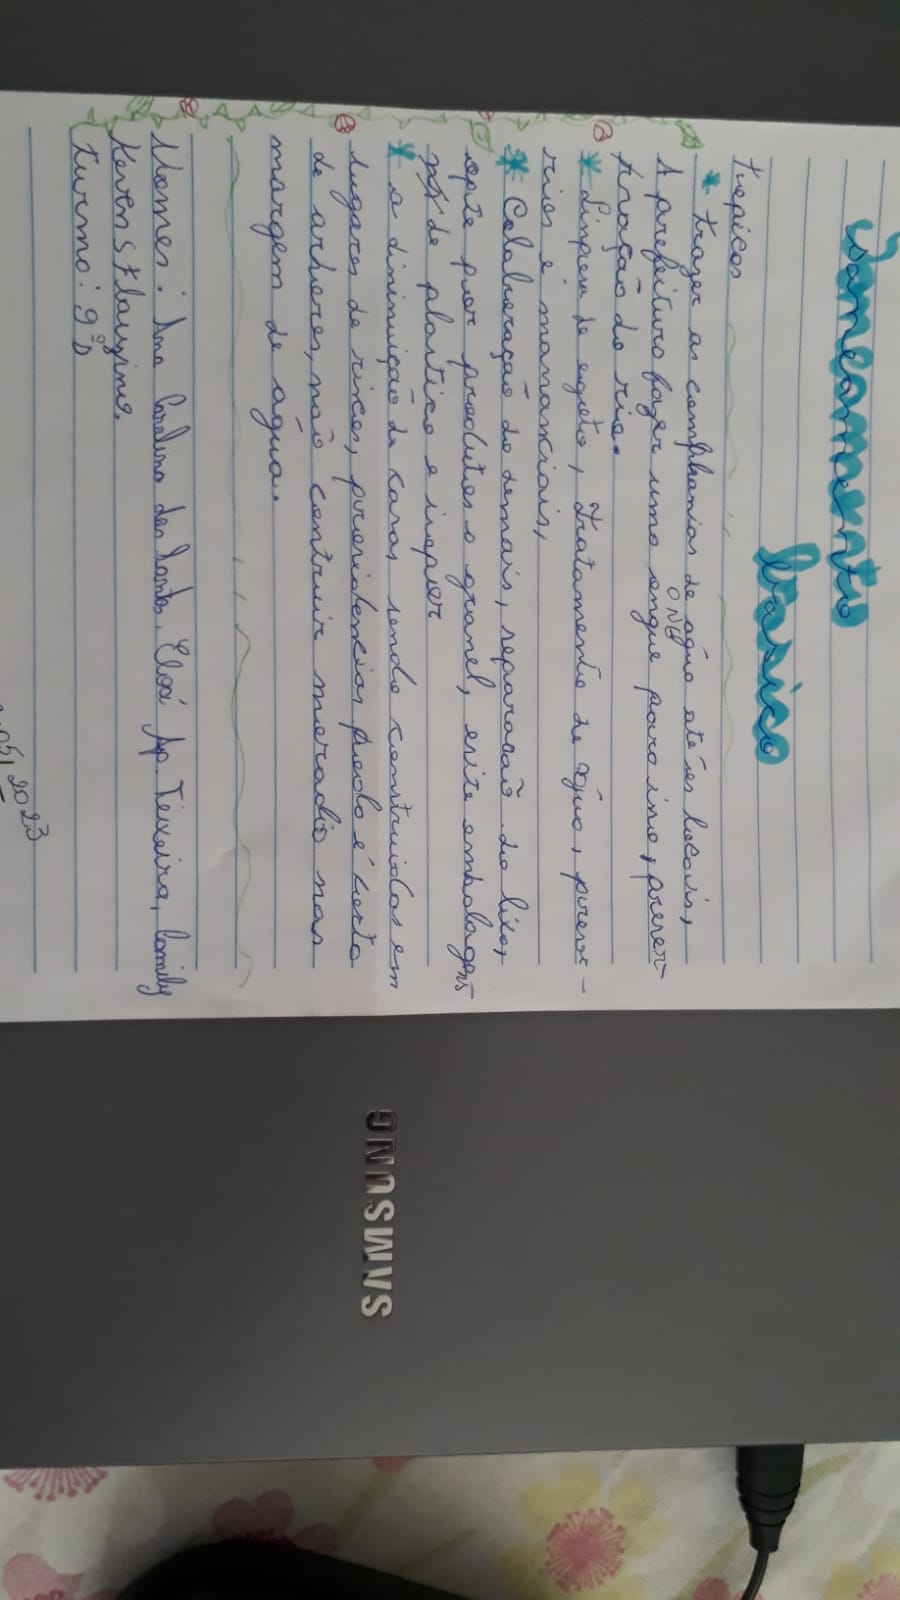 Saneamento
básico
tropicos
* trazer as companhias de água até es locais,
A prefeitura fazer uma ongue para isso, preser-
ONG
tração do rio.
* Limpeza de esgoto, tratamento de água, preser-
rios e mananciais,
* Colaboração do demais, separação do lixo,
opte por produtos a granel, evite embalagens
de plastico e isopor
* a diminuição de casas sendo construidas em
lugares de riscos, providencias predo é certo
de arvores, não contruir moradio nas
margem de água.
Nomes: Ana Carolina dos Santos, Eloá Ap. Teixeira, Camily
Keven S
turma: 9°D
05/2023
SAMSUNG